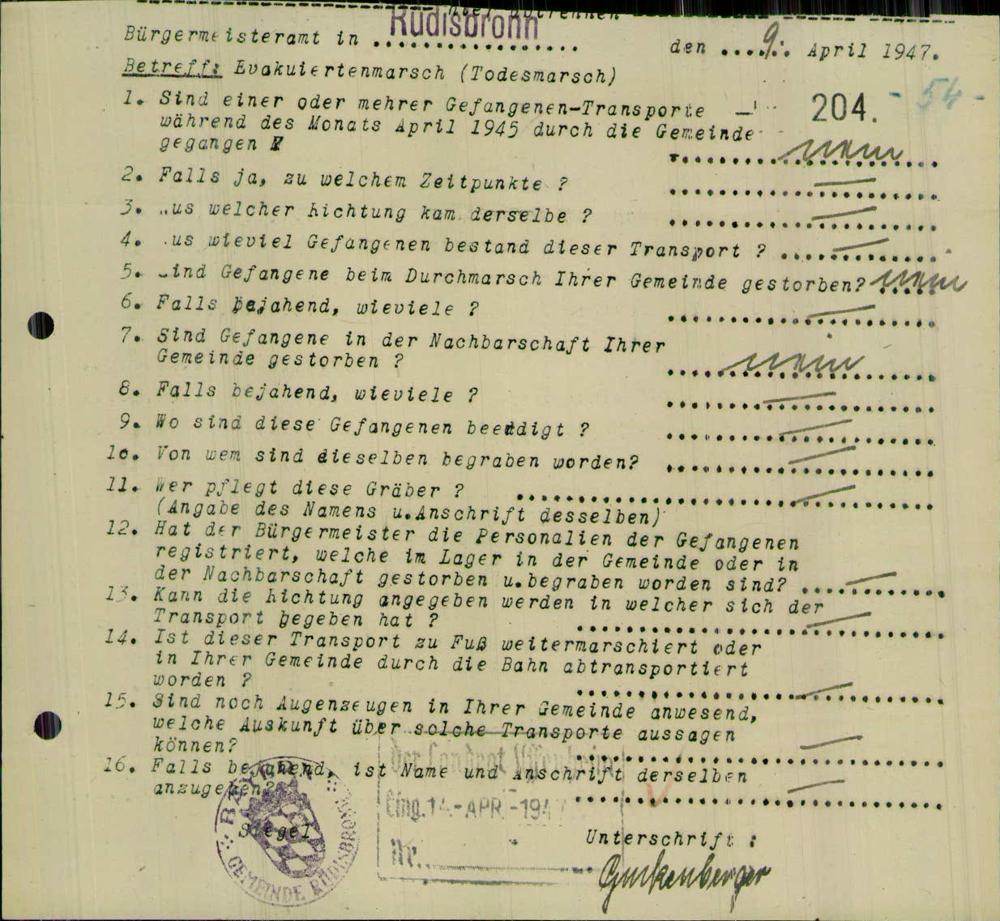 hier abtrennen
Bürgermeisteramt in Rüdisbronn den 9. April 1947.
Betreff: Evakuiertenmarsch (Todesmarsch)
- 54 -
1. Sind einer oder mehrer Gefangenen-Transporte 204.
während des Monats April 1945 durch die Gemeinde
gegangen nein
2. Falls ja, zu welchem Zeitpunkte ? —
3. us welcher Richtung kam derselbe ? —
4. us wieviel Gefangenen bestand dieser Transport ? —
5. ind Gefangene beim Durchmarsch Ihrer Gemeinde gestorben? nein
6. Falls bejahend, wieviele ? —
7. Sind Gefangene in der Nachbarschaft Ihrer
Gemeinde gestorben ? nein
8. Falls bejahend, wieviele ? —
9. Wo sind diese Gefangenen beerdigt ? —
10. Von wem sind dieselben begraben worden? —
11. Wer pflegt diese Gräber ? —
(Angabe des Namens u.Anschrift desselben)
12. Hat der Bürgermeister die Personalien der Gefangenen
registriert, welche im Lager in der Gemeinde oder in
der Nachbarschaft gestorben u.begraben worden sind? —
13. Kann die Richtung angegeben werden in welcher sich der
Transport begeben hat ? —
14. Ist dieser Transport zu Fuß weitermarschiert oder
in Ihrer Gemeinde durch die Bahn abtransportiert
worden ? —
15. Sind noch Augenzeugen in Ihrer Gemeinde anwesend,
welche Auskunft über solche Transporte aussagen
können? —
16. Falls bejahend, ist Name und Anschrift derselben
anzugeben? —
Der Landrat Uffenheim
Eing. 14. APR. 194
Nr.
Siegel
BAYERN
GEMEINDE RÜDISBRONN
Unterschrift :
Gunkenberger